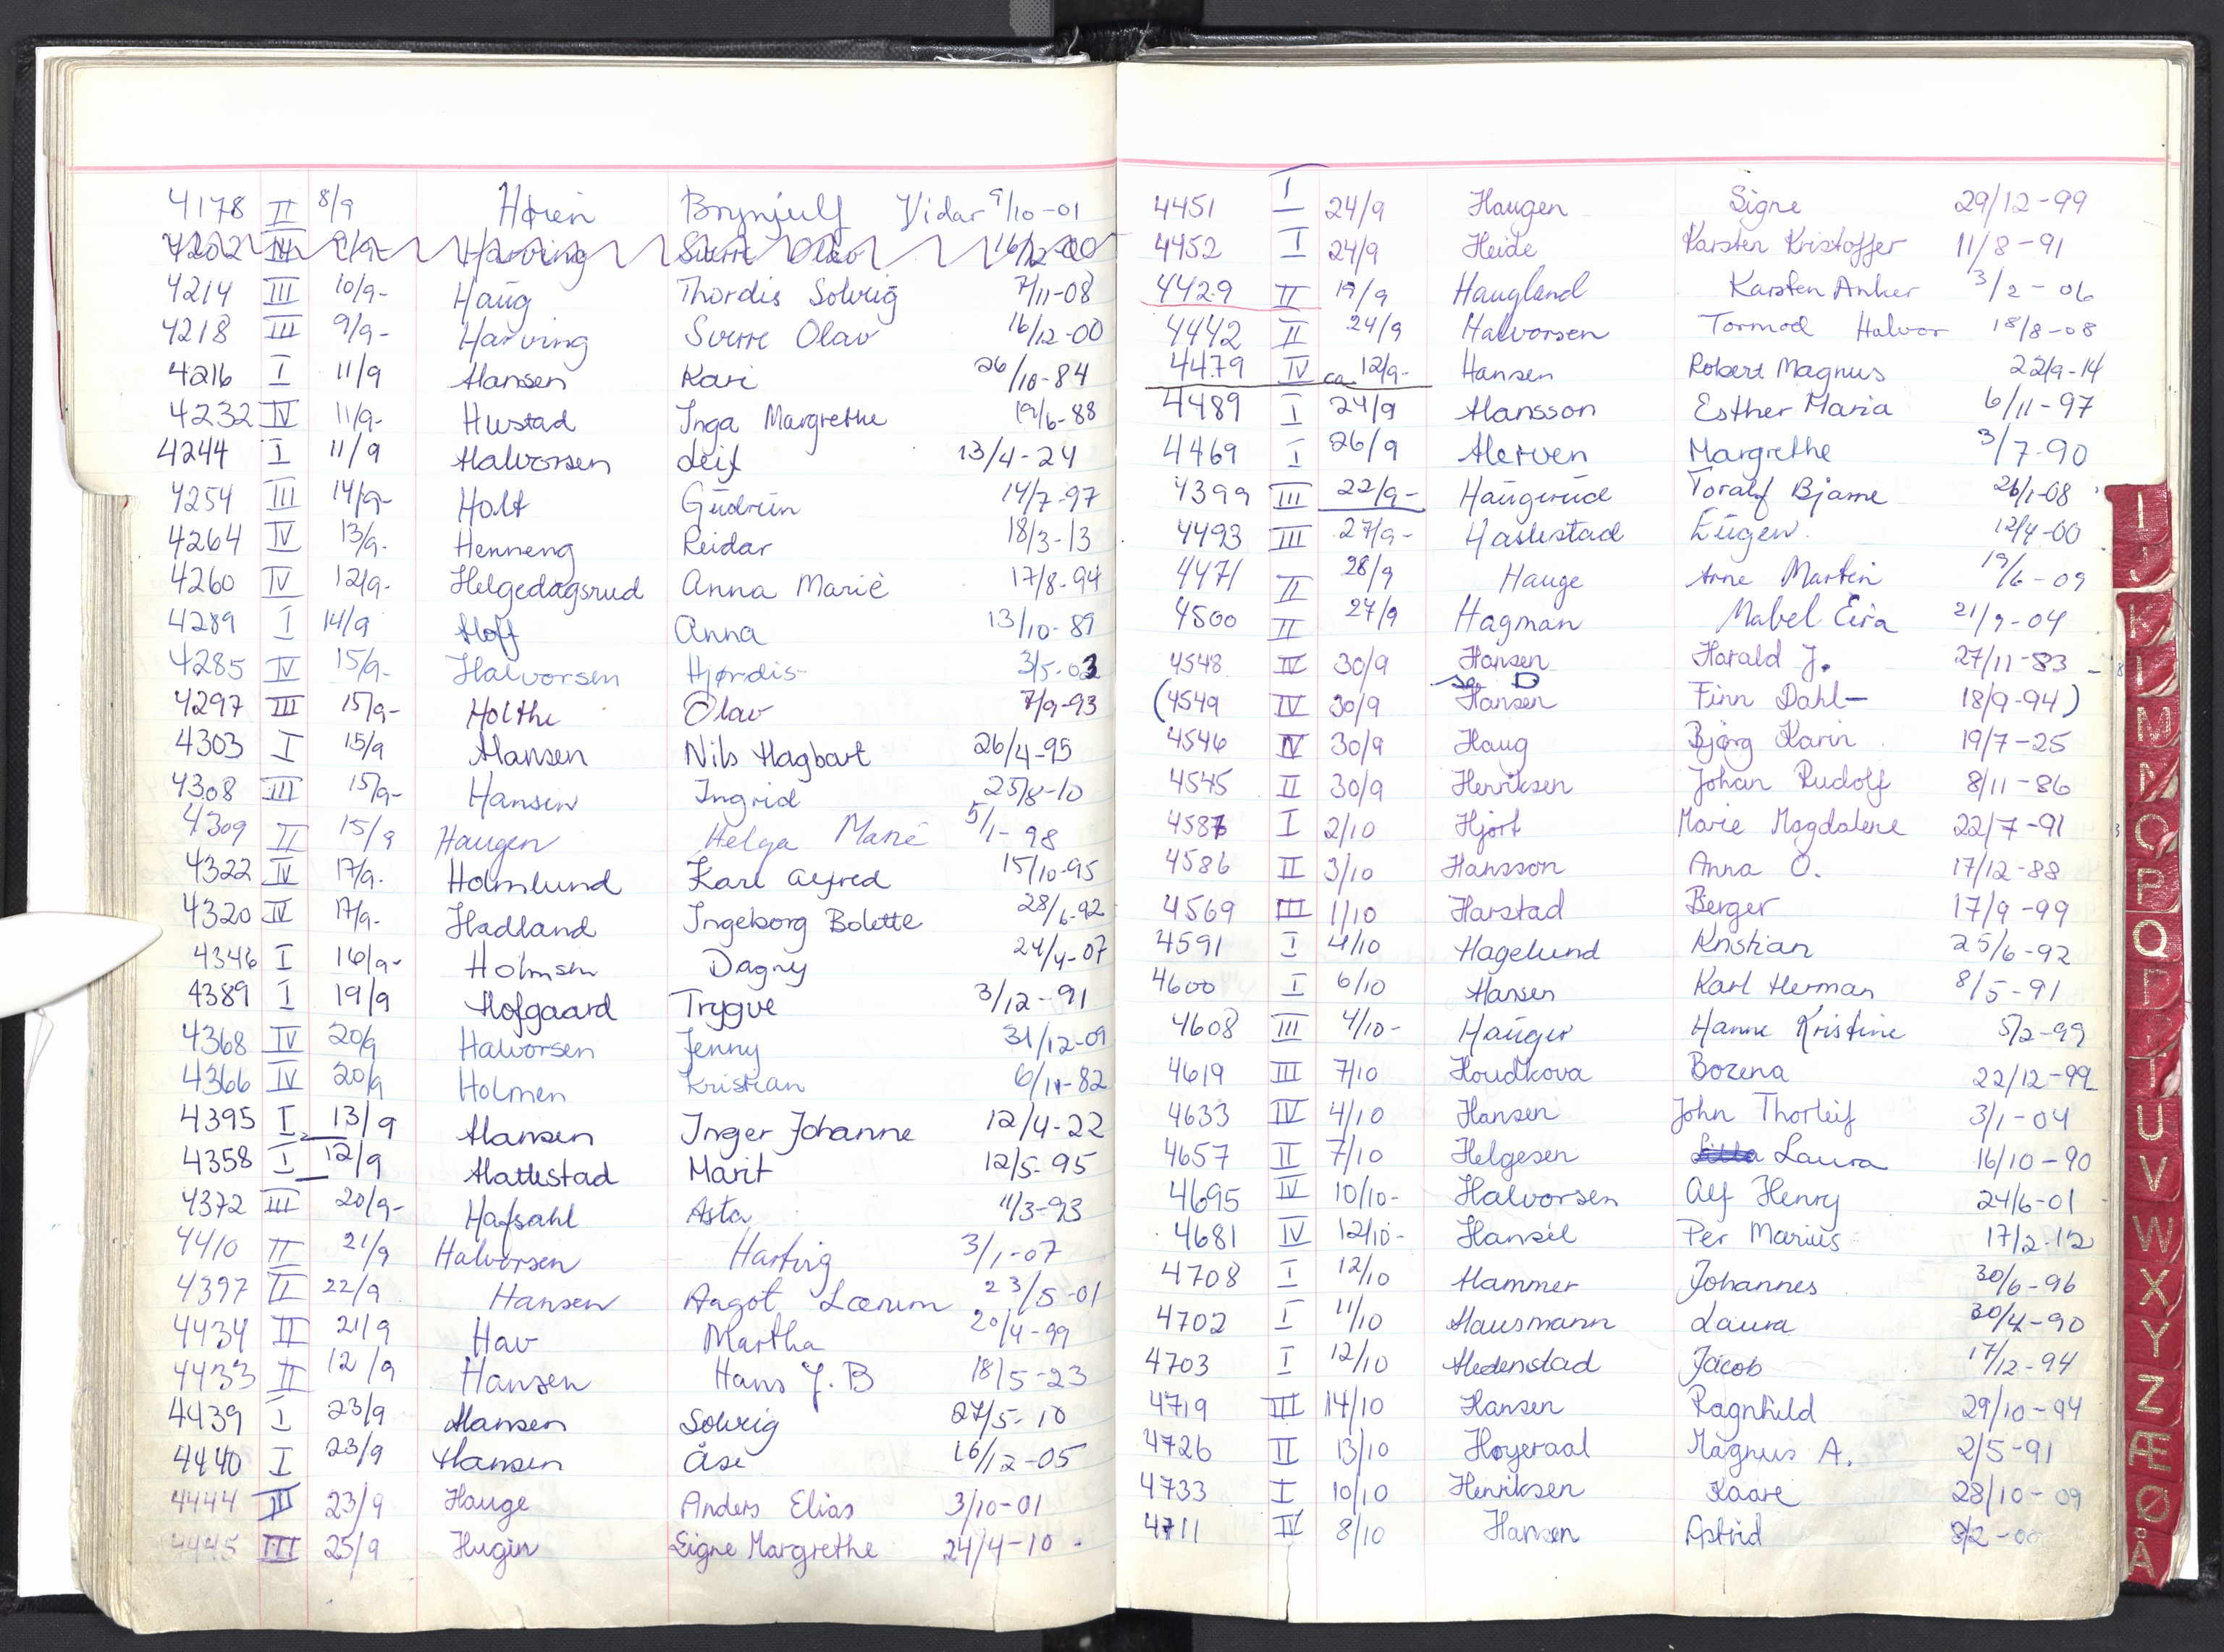 4178 II 8/9 Høien Brynjulf Vidar 9/10-01
4202 III 9/9- Harving Sverre Olav 16/12-00
4214 III 10/9- Haug Thordis Solveig 7/11-08
4218 III 9/9- Harving Sverre Olav 16/12-00
4216 I 11/9 Hansen Kari 26/10-84
4232 IV 11/9- Hustad Inga Margrethe 19/6-88
4244 I 11/9 Halvorsen Leif 13/4-24
4254 III 14/9- Holt Gudrun 14/7-97
4264 IV 13/9- Henneng Reidar 18/3-13
4260 IV 12/9- Helgedagsrud Anna Marie 17/8-94
4289 I 14/9 Hoff Anna 13/10-89
4285 IV 15/9- Halvorsen Hjørdis 3/5-03
4297 III 15/9- Holthe Olav 7/9-93
4303 I 15/9 Hansen Nils Hagbart 26/4-95
4308 III 15/9- Hansen Ingrid 25/8-10
4309 II 15/9 Haugen Helga Marie 5/1-98
4322 IV 17/9- Holmlund Karl Alfred 15/10-95
4320 IV 17/9- Hadland Ingeborg Bolette 28/6-92
4346 I 16/9- Holmsen Dagny 24/4-07
4389 I 19/9 Hofgaard Trygve 3/12-91
4368 IV 20/9 Halvorsen Jenny 31/12-09
4366 IV 20/9 Holmen Kristian 6/11-82
4395 I 13/9 Hansen Inger Johanne 12/4-22
4358 I 12/9 Hattestad Marit 12/5-95
4372 III 20/9- Hafsahl Asta 11/3-93
4410 II 21/9 Halvorsen Hartvig 3/1-07
4397 II 22/9 Hansen Aagot Lærum 23/5-01
4434 II 21/9 Hav Martha 20/4-99
4433 II 12/9 Hansen Hans J. B 18/5-23
4439 I 23/9 Hansen Solveig 27/5-10
4440 I 23/9 Hansen Åse 16/12-05
4444 II 23/9 Hauge Anders Elias 3/10-01
4445 III 25/9 Hugin Signe Margrethe 24/4-10
4451 I 24/9 Haugen Signe 29/12-99
4452 I 24/9 Heide Karsten Kristoffer 11/8-91
4429 II 19/9 Haugland Karsten Anker 3/2-06
4442 II 24/9 Halvorsen Tormod Halvor 18/8-08
4479 IV ca 12/9- Hansen Robert Magnus 22/9-14
4489 I 24/9 Hansson Esther Maria 6/11-97
4469 I 26/9 Herven Margrethe 3/7-90
4399 III 22/9- Haugerud Toralf Bjarne 26/1-08
4493 III 27/9- Haslestad Eugen 12/4-00
4471 II 28/9 Hauge Arne Martin 19/6-09
4500 II 27/9 Hagman Mabel Eira 21/9-04
4548 IV 30/9 Hansen Harald J. 27/11-83
se D
(4549 IV 30/9 Hansen Finn Dahl- 18/9-94)
4546 IV 30/9 Haug Bjørg Karin 19/7-25
4545 II 30/9 Henriksen Johan Rudolf 8/11-86
4587 I 2/10 Hjort Marie Magdalene 22/7-91
4586 II 3/10 Hansson Anna O. 17/12-88
4569 III 1/10 Harstad Berger 17/9-99
4591 I 4/10 Hagelund Kristian 25/6-92
4600 I 6/10 Hansen Karl Herman 8/5-91
4608 III 4/10- Hauger Hanne Kristine 5/2-99
4619 III 7/10 Houdkova Bozena 22/12-99
4633 IV 4/10 Hansen John Thorleif 3/1-04
4657 II 7/10 Helgesen Laura 16/10-90
4695 IV 10/10- Halvorsen Alf Henry 24/6-01
4681 IV 12/10- Hansèl Per Marius 17/2-12
4708 I 12/10 Hammer Johannes 30/6-96
4702 I 11/10 Hausmann Laura 30/4-90
4703 I 12/10 Hedenstad Jacob 17/12-94
4719 III 14/10 Hansen Ragnhild 29/10-94
4726 II 13/10 Høyeraal Magnus A. 2/5-91
4733 I 10/10 Henriksen Kaare 28/10-09
4711 IV 8/10 Hansen Astrid
I
J
K
L
M
N
O
P
Q
U
V
W
X
Y
Z
Æ
Ø
Å